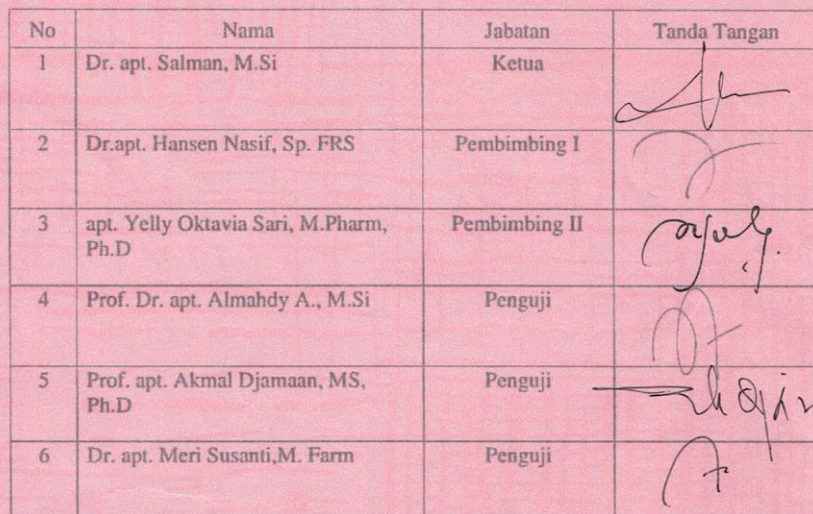 No Nama Jabatan Tanda Tangan
1 Dr. apt. Salman, M.Si Ketua
2 Dr.apt. Hansen Nasif, Sp. FRS Pembimbing I
3 apt. Yelly Oktavia Sari, M.Pharm, Pembimbing II
Ph.D
4 Prof. Dr. apt. Almahdy A., M.Si Penguji
5 Prof. apt. Akmal Djamaan, MS, Penguji
Ph.D
6 Dr. apt. Meri Susanti,M. Farm Penguji